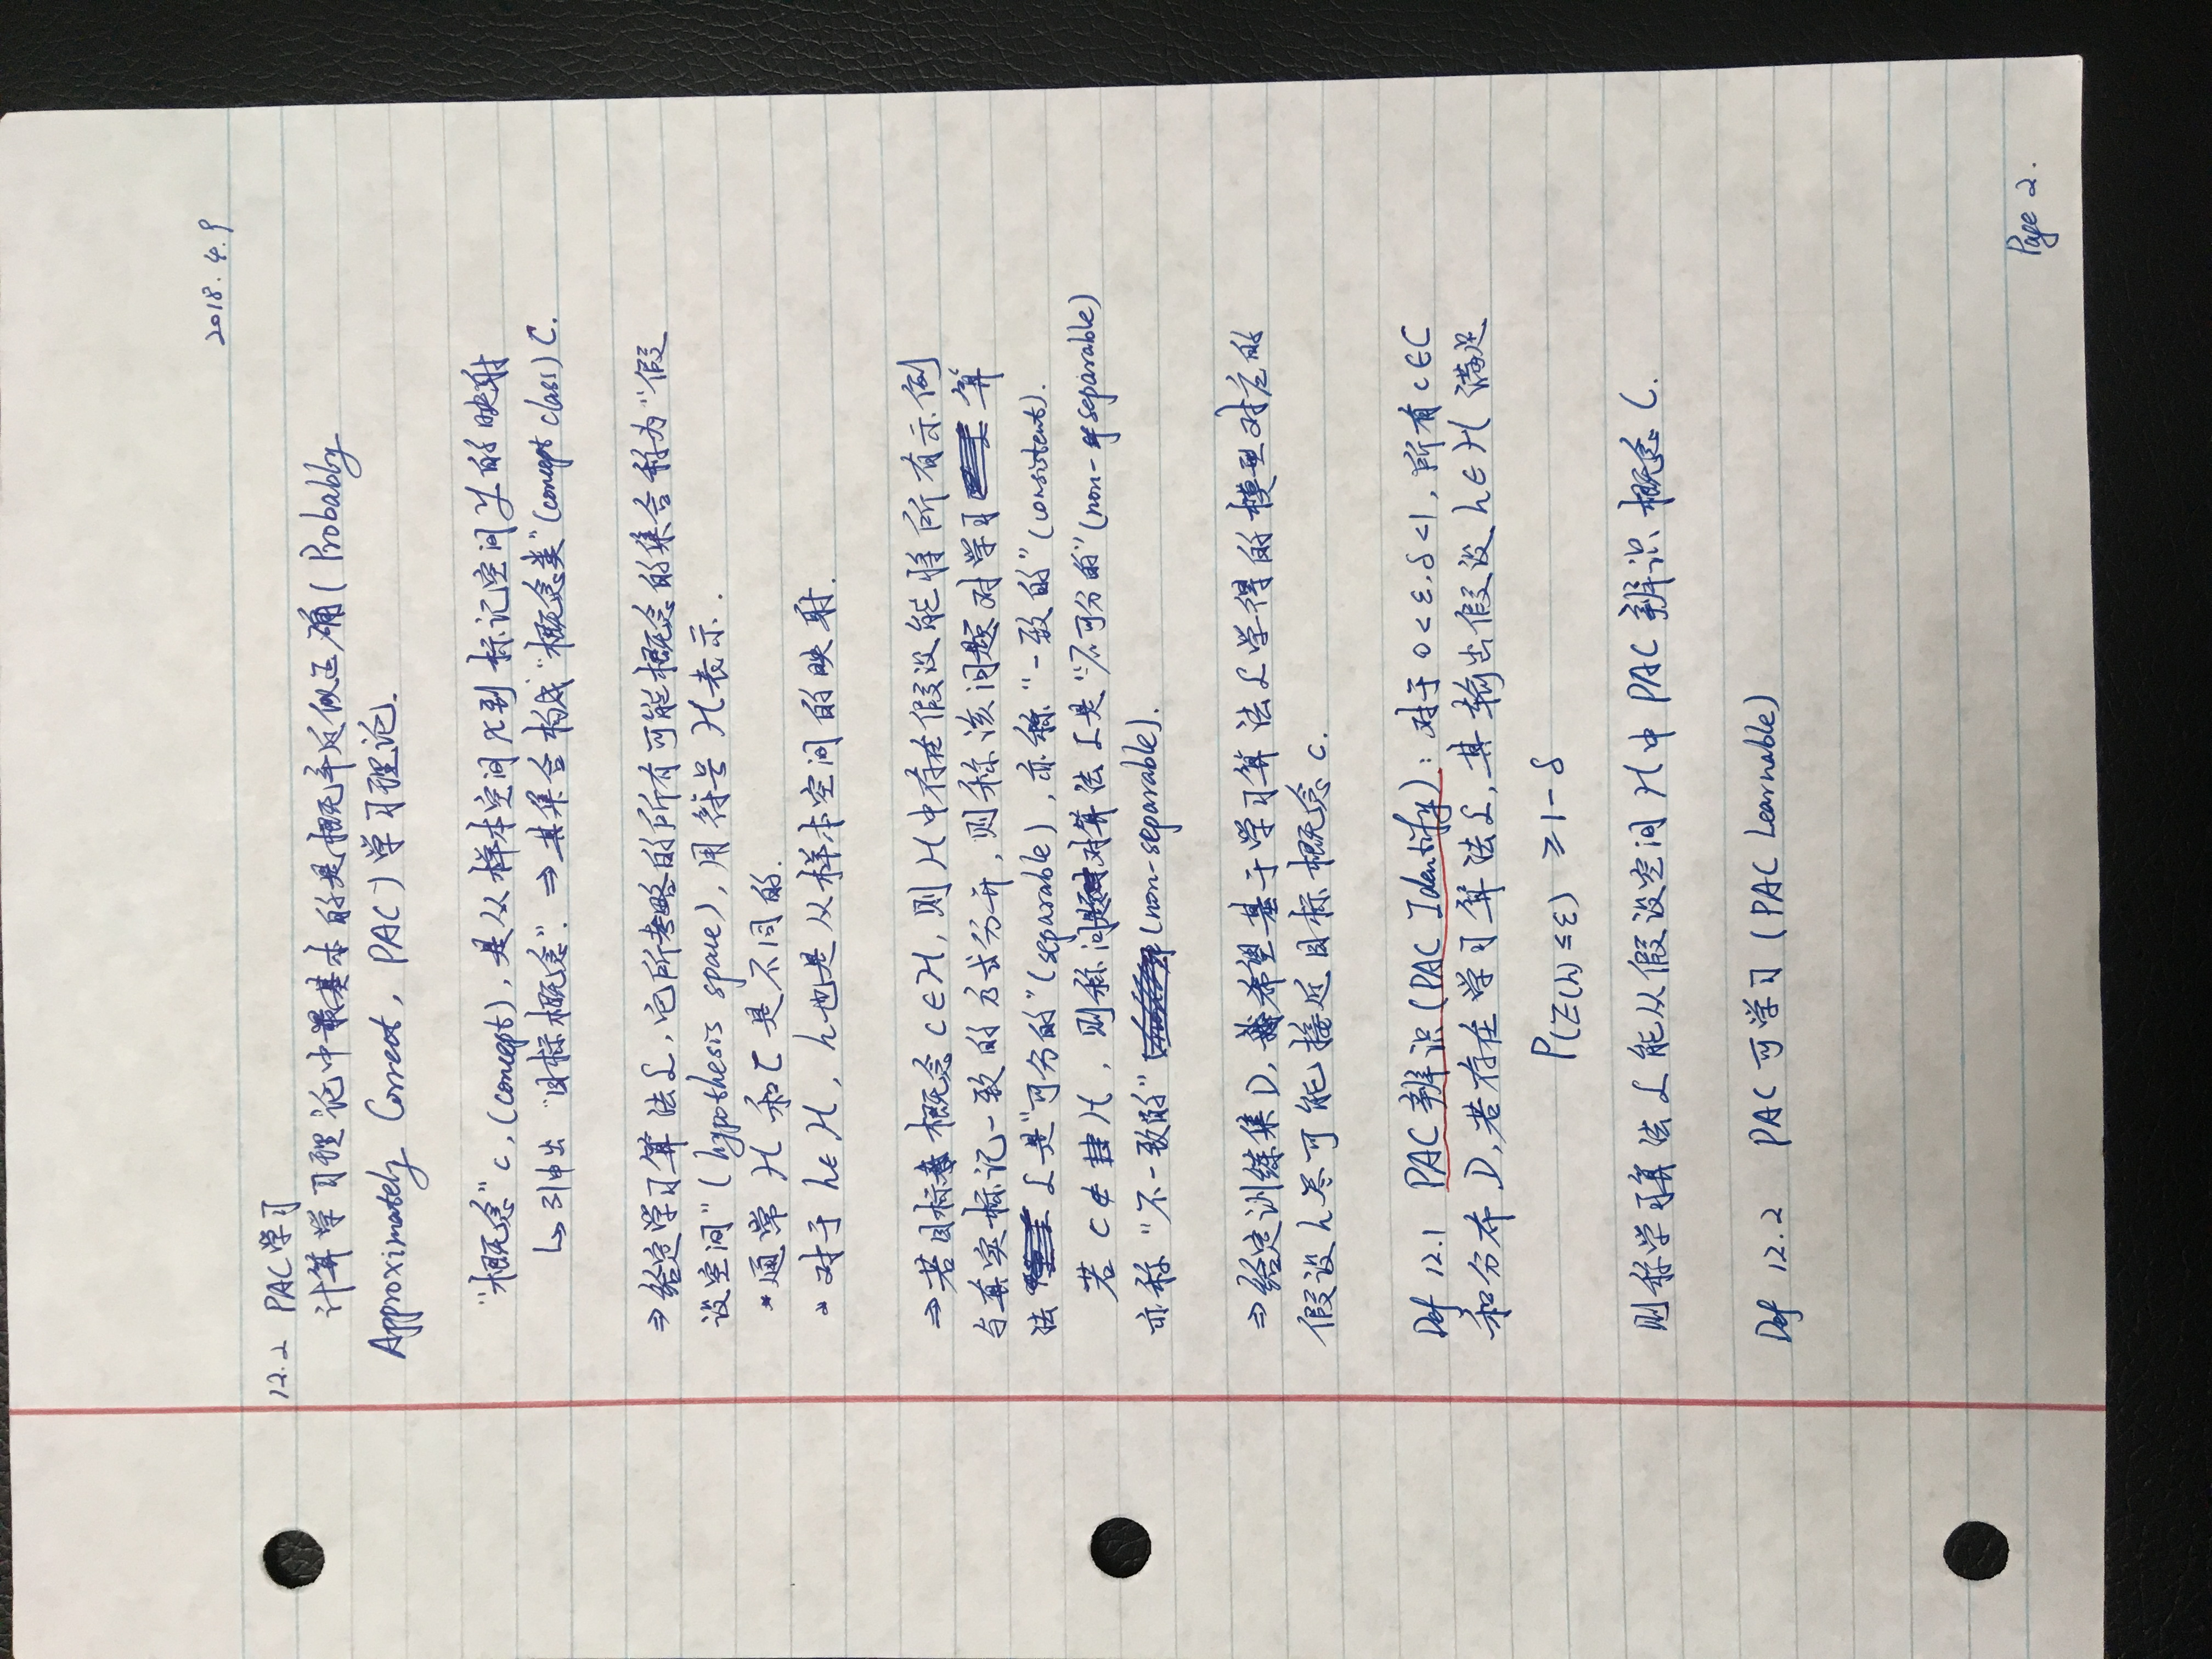 2018.4.9
12.2 PAC学习
计算学习理论中最基本的是概率近似正确(Probably
Approximately Correct, PAC)学习理论.
"概念"c,(concept),是从样本空间X到标记空间Y的映射
↳引申出"目标概念".⇒其集合构成"概念类"(concept class)C.
⇒给定学习算法L,它所考略的所有可能概念的集合称为"假
设空间"(hypothesis space),用符号H表示.
*通常H和C是不同的.
*对于h∈H,h也是从样本空间的映射.
⇒若目标概念c∈H,则H中存在假设能将所有示例
与真实标记一致的方式分开,则称该问题对学习算
法L是"可分的"(separable),亦称"一致的"(consistent).
若c∉H,则称问题对算法L是"不可分的"(non-separable)
亦称"不一致的"(non-separable).
⇒给定训练集D,希望基于学习算法L学得的模型对应的
假设h尽可能接近目标概念c.
Def 12.1 PAC辨识(PAC Identify):对于0<ε,δ<1,所有c∈C
和分布D,若存在学习算法L,其输出假设h∈H满足
P(E(h)≤ε)≥1-δ
则称学习算法L能从假设空间H中PAC辨识概念C.
Def 12.2 PAC可学习(PAC Learnable)
Page 2.